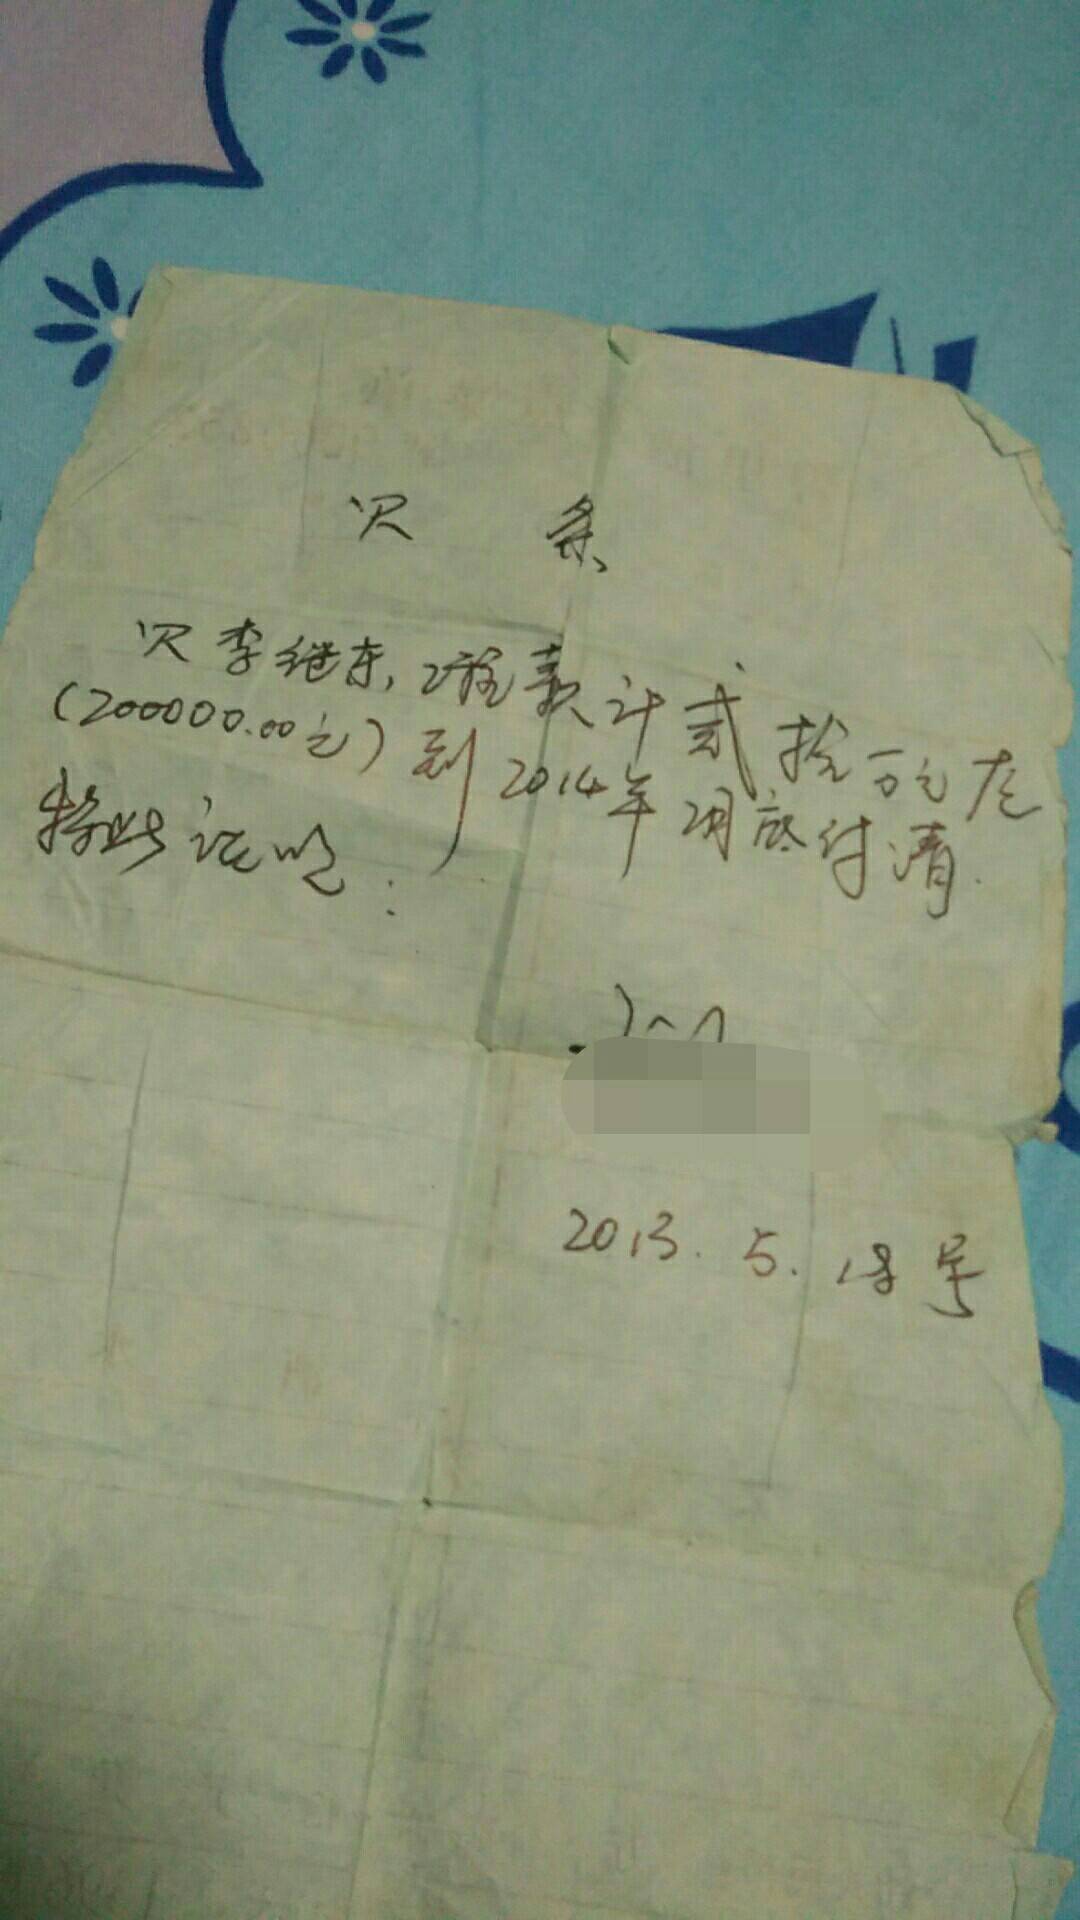 欠 条
欠李继东工程款计贰拾万元左
(200000.00元)到2014年2月底付清.
特此证明:
2013.5.18号